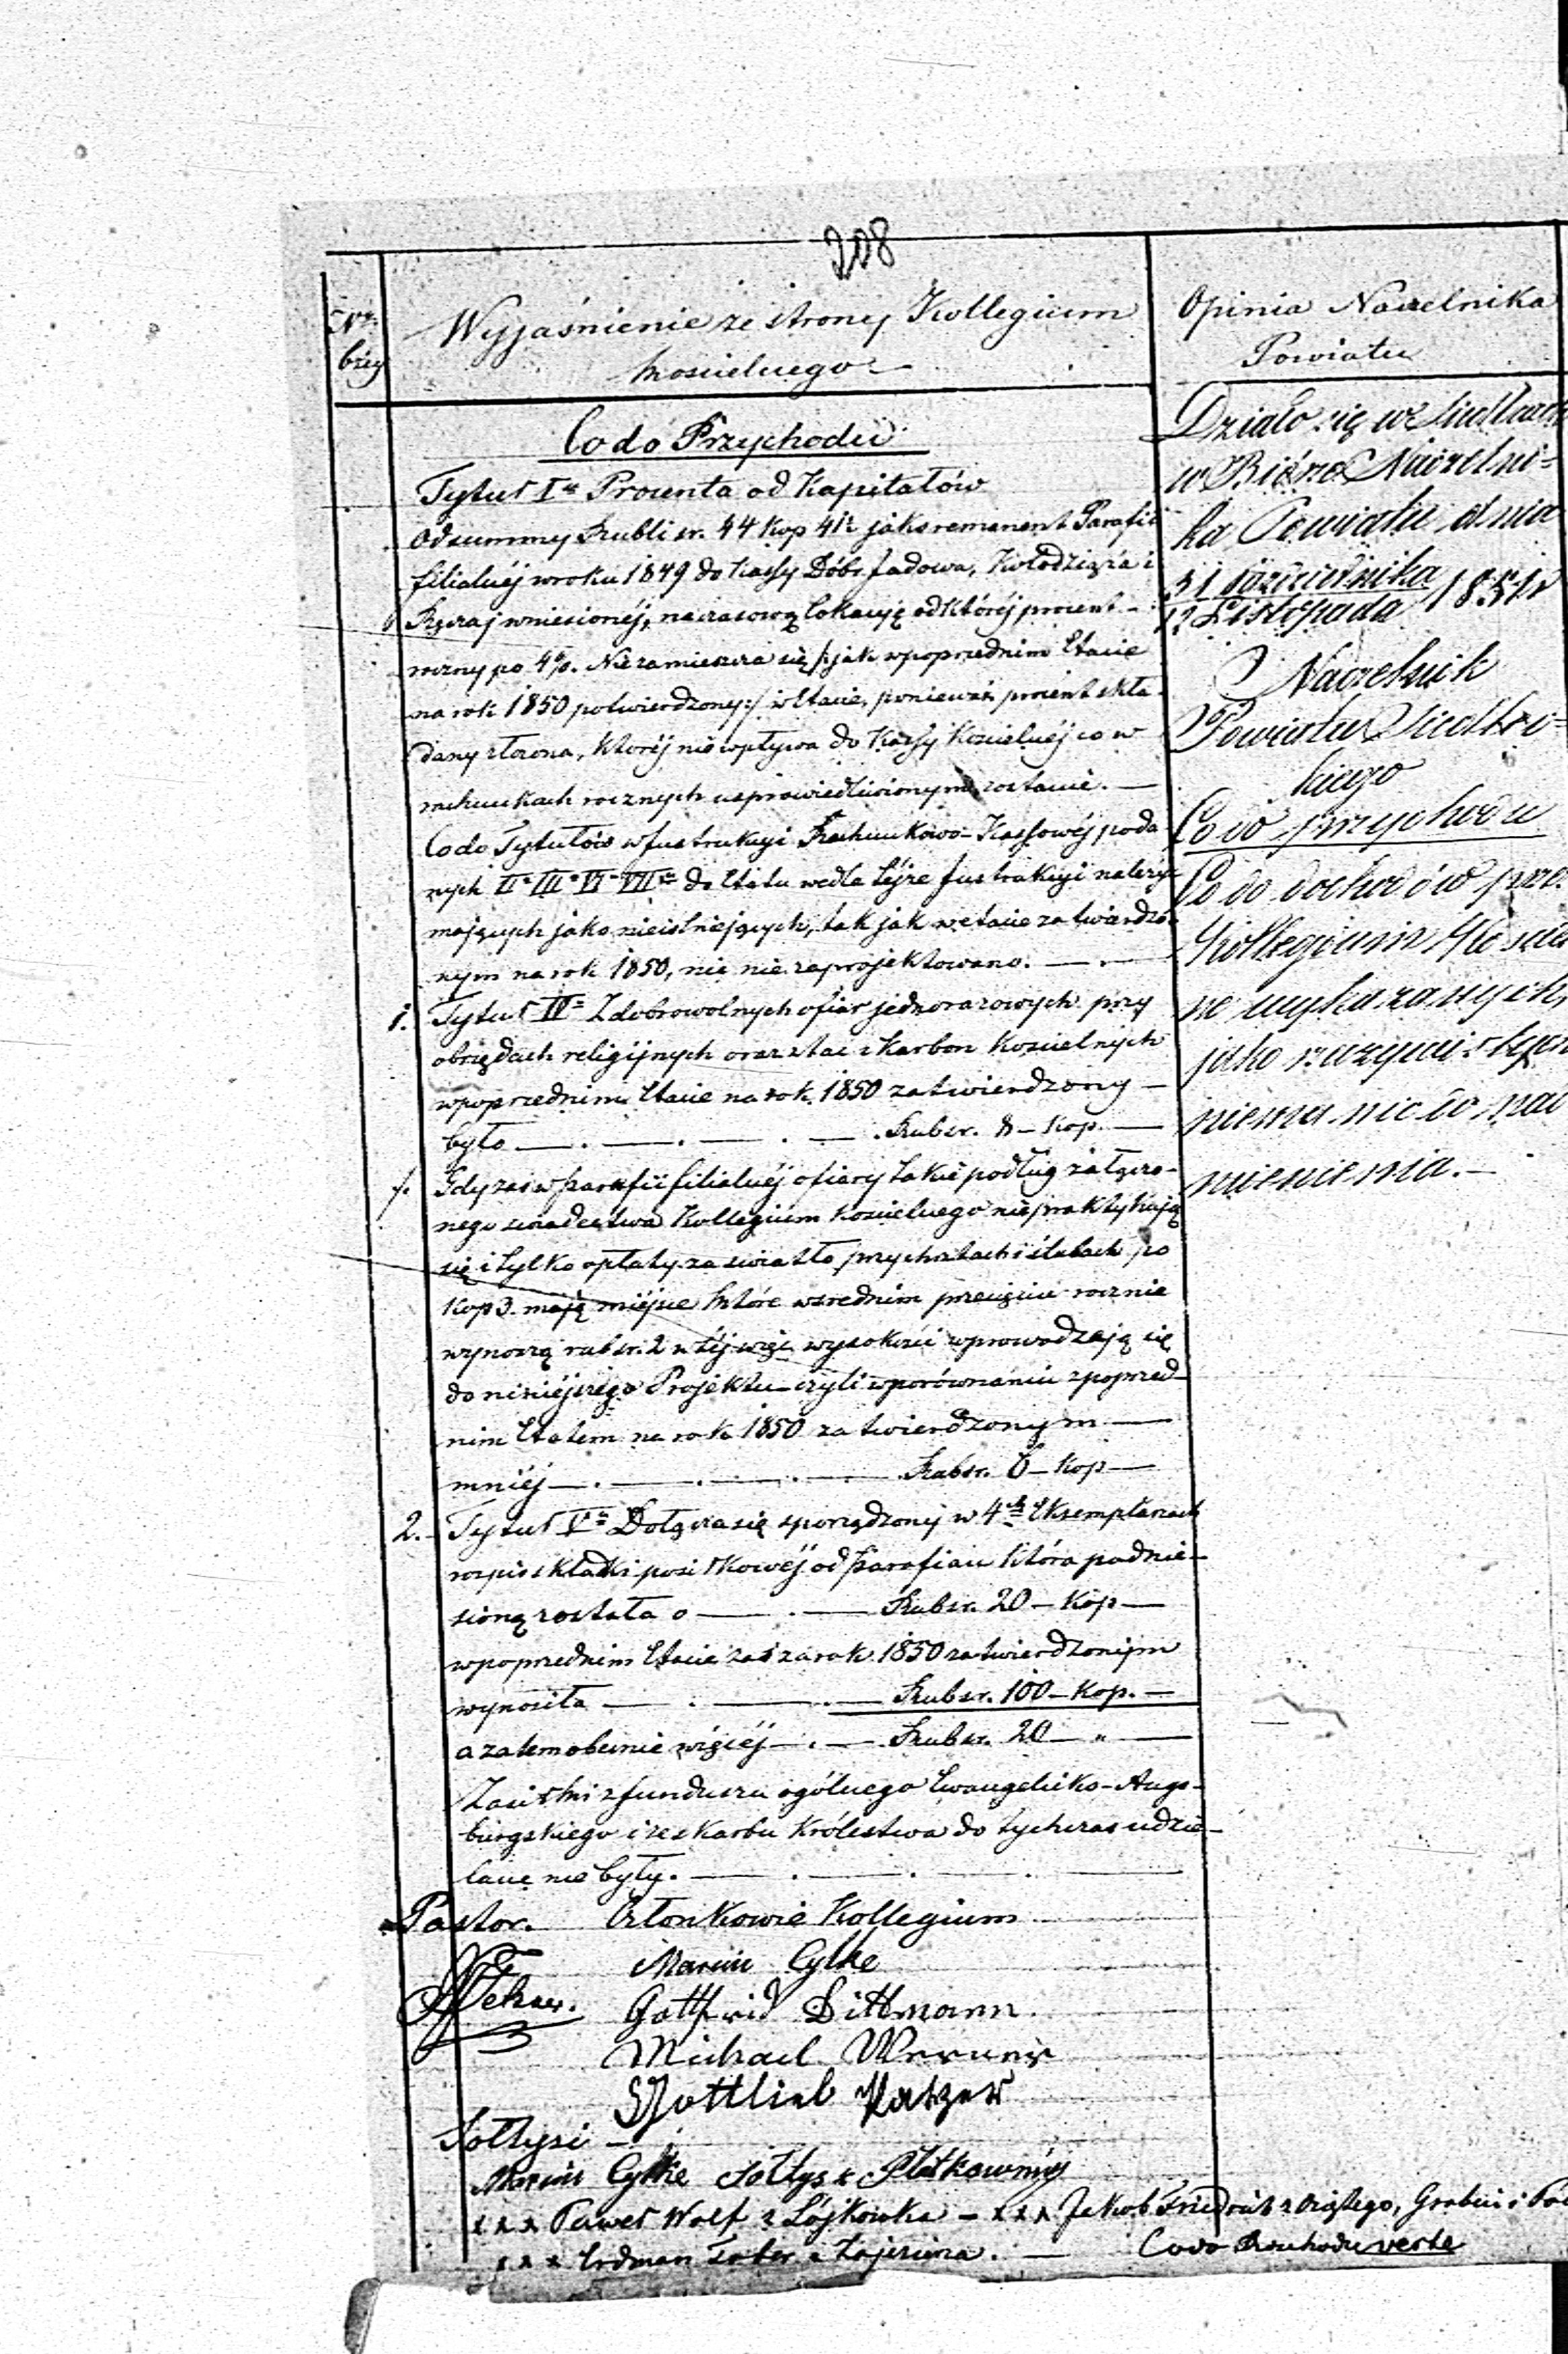 208
Nr.
bieg
Wyjaśnienie ze strony Kollegium
Kościelnego
Co do Przychodu
Tytuł I. Procenta od Kapitałów
Od summy Rubli sr. 44 Kop 41½ jako remanent Parafii
filialnéj w roku 1849 do Kassy Dóbr Jadowa, Kołodziąża i
wniesionéj, na czasową lokacyę od któréj procent
roczny po 4%. Nie zamieszcza się /: jak w poprzednim Etacie
na rok 1850 potwierdzony :/ w Etacie, ponieważ procent skła-
dany, któréj nie wpływa do Kassy Kościelnéj co w
rachunkach rocznych usprawiedliwionym zostanie.
Co do Tytułów w Instrukcyi Rachunkowo-Kassowéj poda-
nych II. III. VI. VII. do Etatu wedle téjże Instrukcyi należyć
mających jako nieistniejących, tak jak w etacie zatwierdzo-
nym na rok 1850, nic nie zaprojektowano.
1. Tytuł IV. Z dobrowolnych ofiar jednorazowych przy
obrzędach religijnych oraz z tac i karbon Kościelnych
w poprzednim Etacie na rok 1850 zatwierdzony
było Rubsr. 8 – Kop.
Gdy zaś w Parafii filialnéj ofiary takie podług załączo-
nego świadectwa Kollegium Kościelnego niepraktykują
się i tylko opłaty za światło przy chrztach i ślubach po
Kop 3. mają miejsce które w średnim przecięciu rocznie
wynoszą rubsr. 2 w téj więc wysokości wprowadzają się
do niniéjszego Projektu czyli w porównaniu z poprzed-
nim Etatem na rok 1850 zatwierdzonym
mniéj Rubsr. 6 – Kop
2. Tytuł V. Dołącza się sporządzony w 4ch Eksemplarzach
rozpis składki posiłkowéj od Parafian która podnie-
sioną została o Rubsr. 20 – Kop
w poprzednim Etacie zaś za rok 1850 zatwierdzonym
wynosiła Rubsr. 100 – Kop.
a zatem obecnie więcéj Rubsr. 20 „
Zasiłki z funduszu ogólnego Ewangelicko-Augs-
burgskiego i ze skarbu Królestwa do tychczas udzie-
lane nie były.
Pastor. Członkowie Kollegium
Marcin Cylke
Gottfrid Dittmann
Michael Werner
Gottlieb Patzer
Sołtysi
Marcin Cylke Sołtys z Płatkownicy
x x x Paweł Wolf z Łójkowka – x x x Jakob Friedrich
x x x Erdman
Co do Rozchodu verte
Opinia Naczelnika
Powiatu
Działo się w Siedlcach
w Biórze Naczelni-
ka Powiatu dnia
31 Października
12 Listopada 1851 r
Naczelnik
Powiatu Siedlec-
kiego
Co do przychodu
Co do dochodów prze
Kollegium Kościel
ne wykazanych,
jako rzeczywistych
niema nic do nad
mienienia.